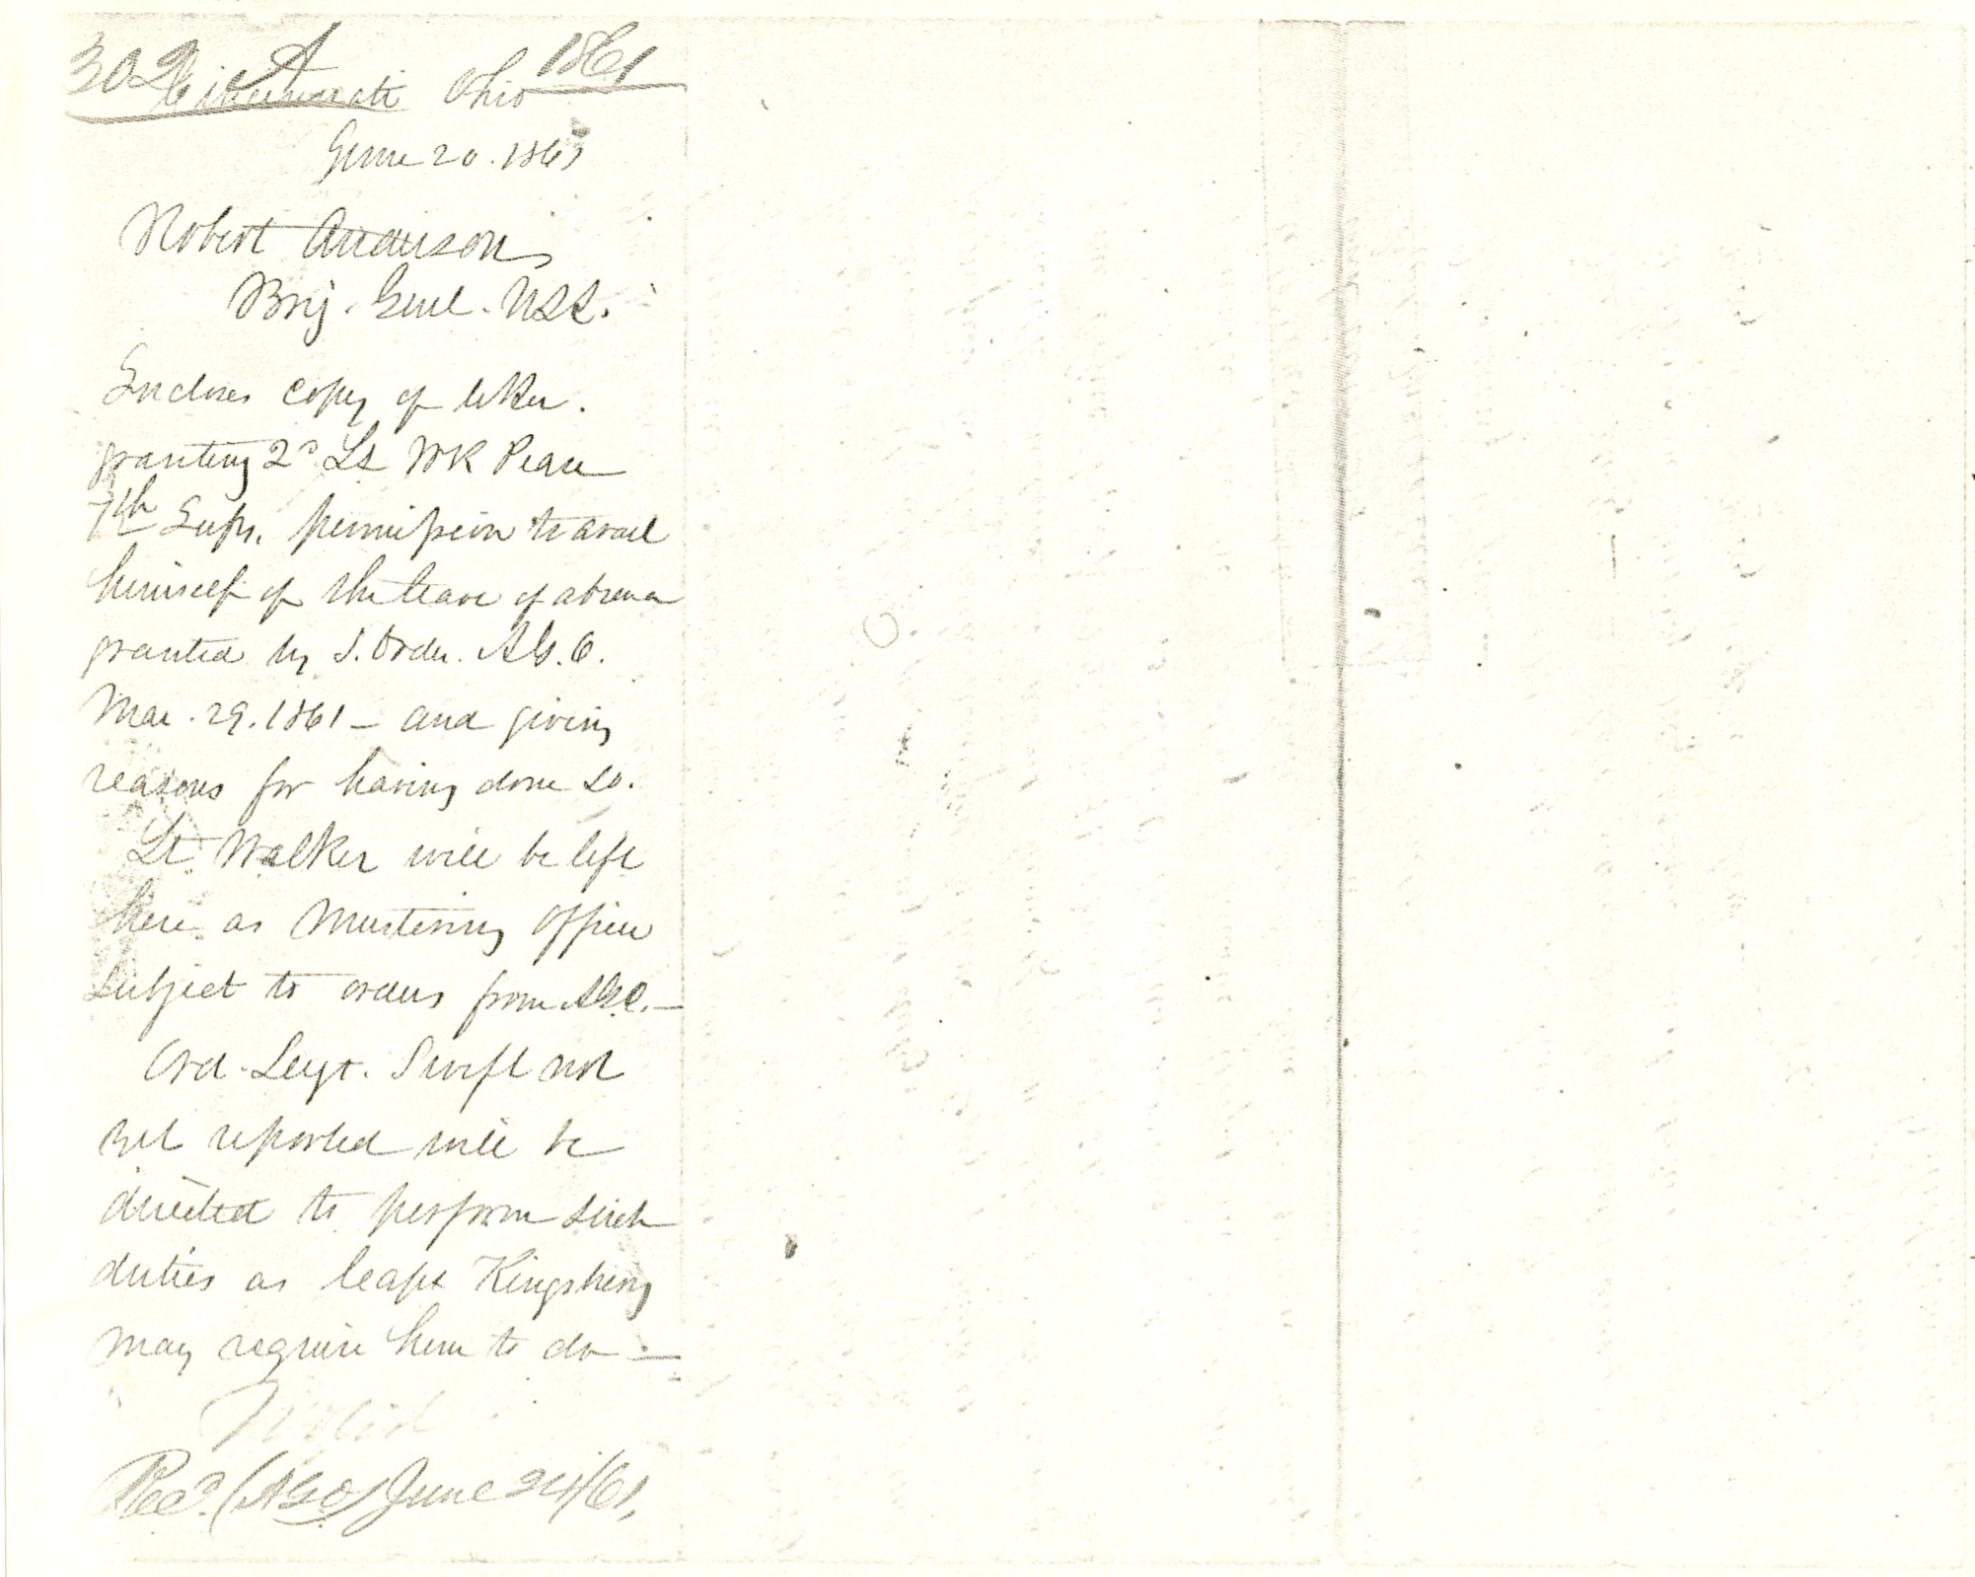 302 A 1861
Cincinnati Ohio
June 20. 1861
Robert Anderson
Brig. Genl. USA.
Encloses copy of letter.
granting 2d Lt WR Pease
7th Infy. permission to avail
himself of the leave of absence
granted by S. Order. A.G.O.
Mar. 29. 1861 - and giving
reasons for having done so.
Lt. Walker will be left
here as Mustering Officer
subject to orders from A.G.O. -
Ord. Sergt. Swift not
yet reported will be
directed to perform such
duties as Capt Kingsbury
may require him to do -
Recd. (AGO) June 24/61,